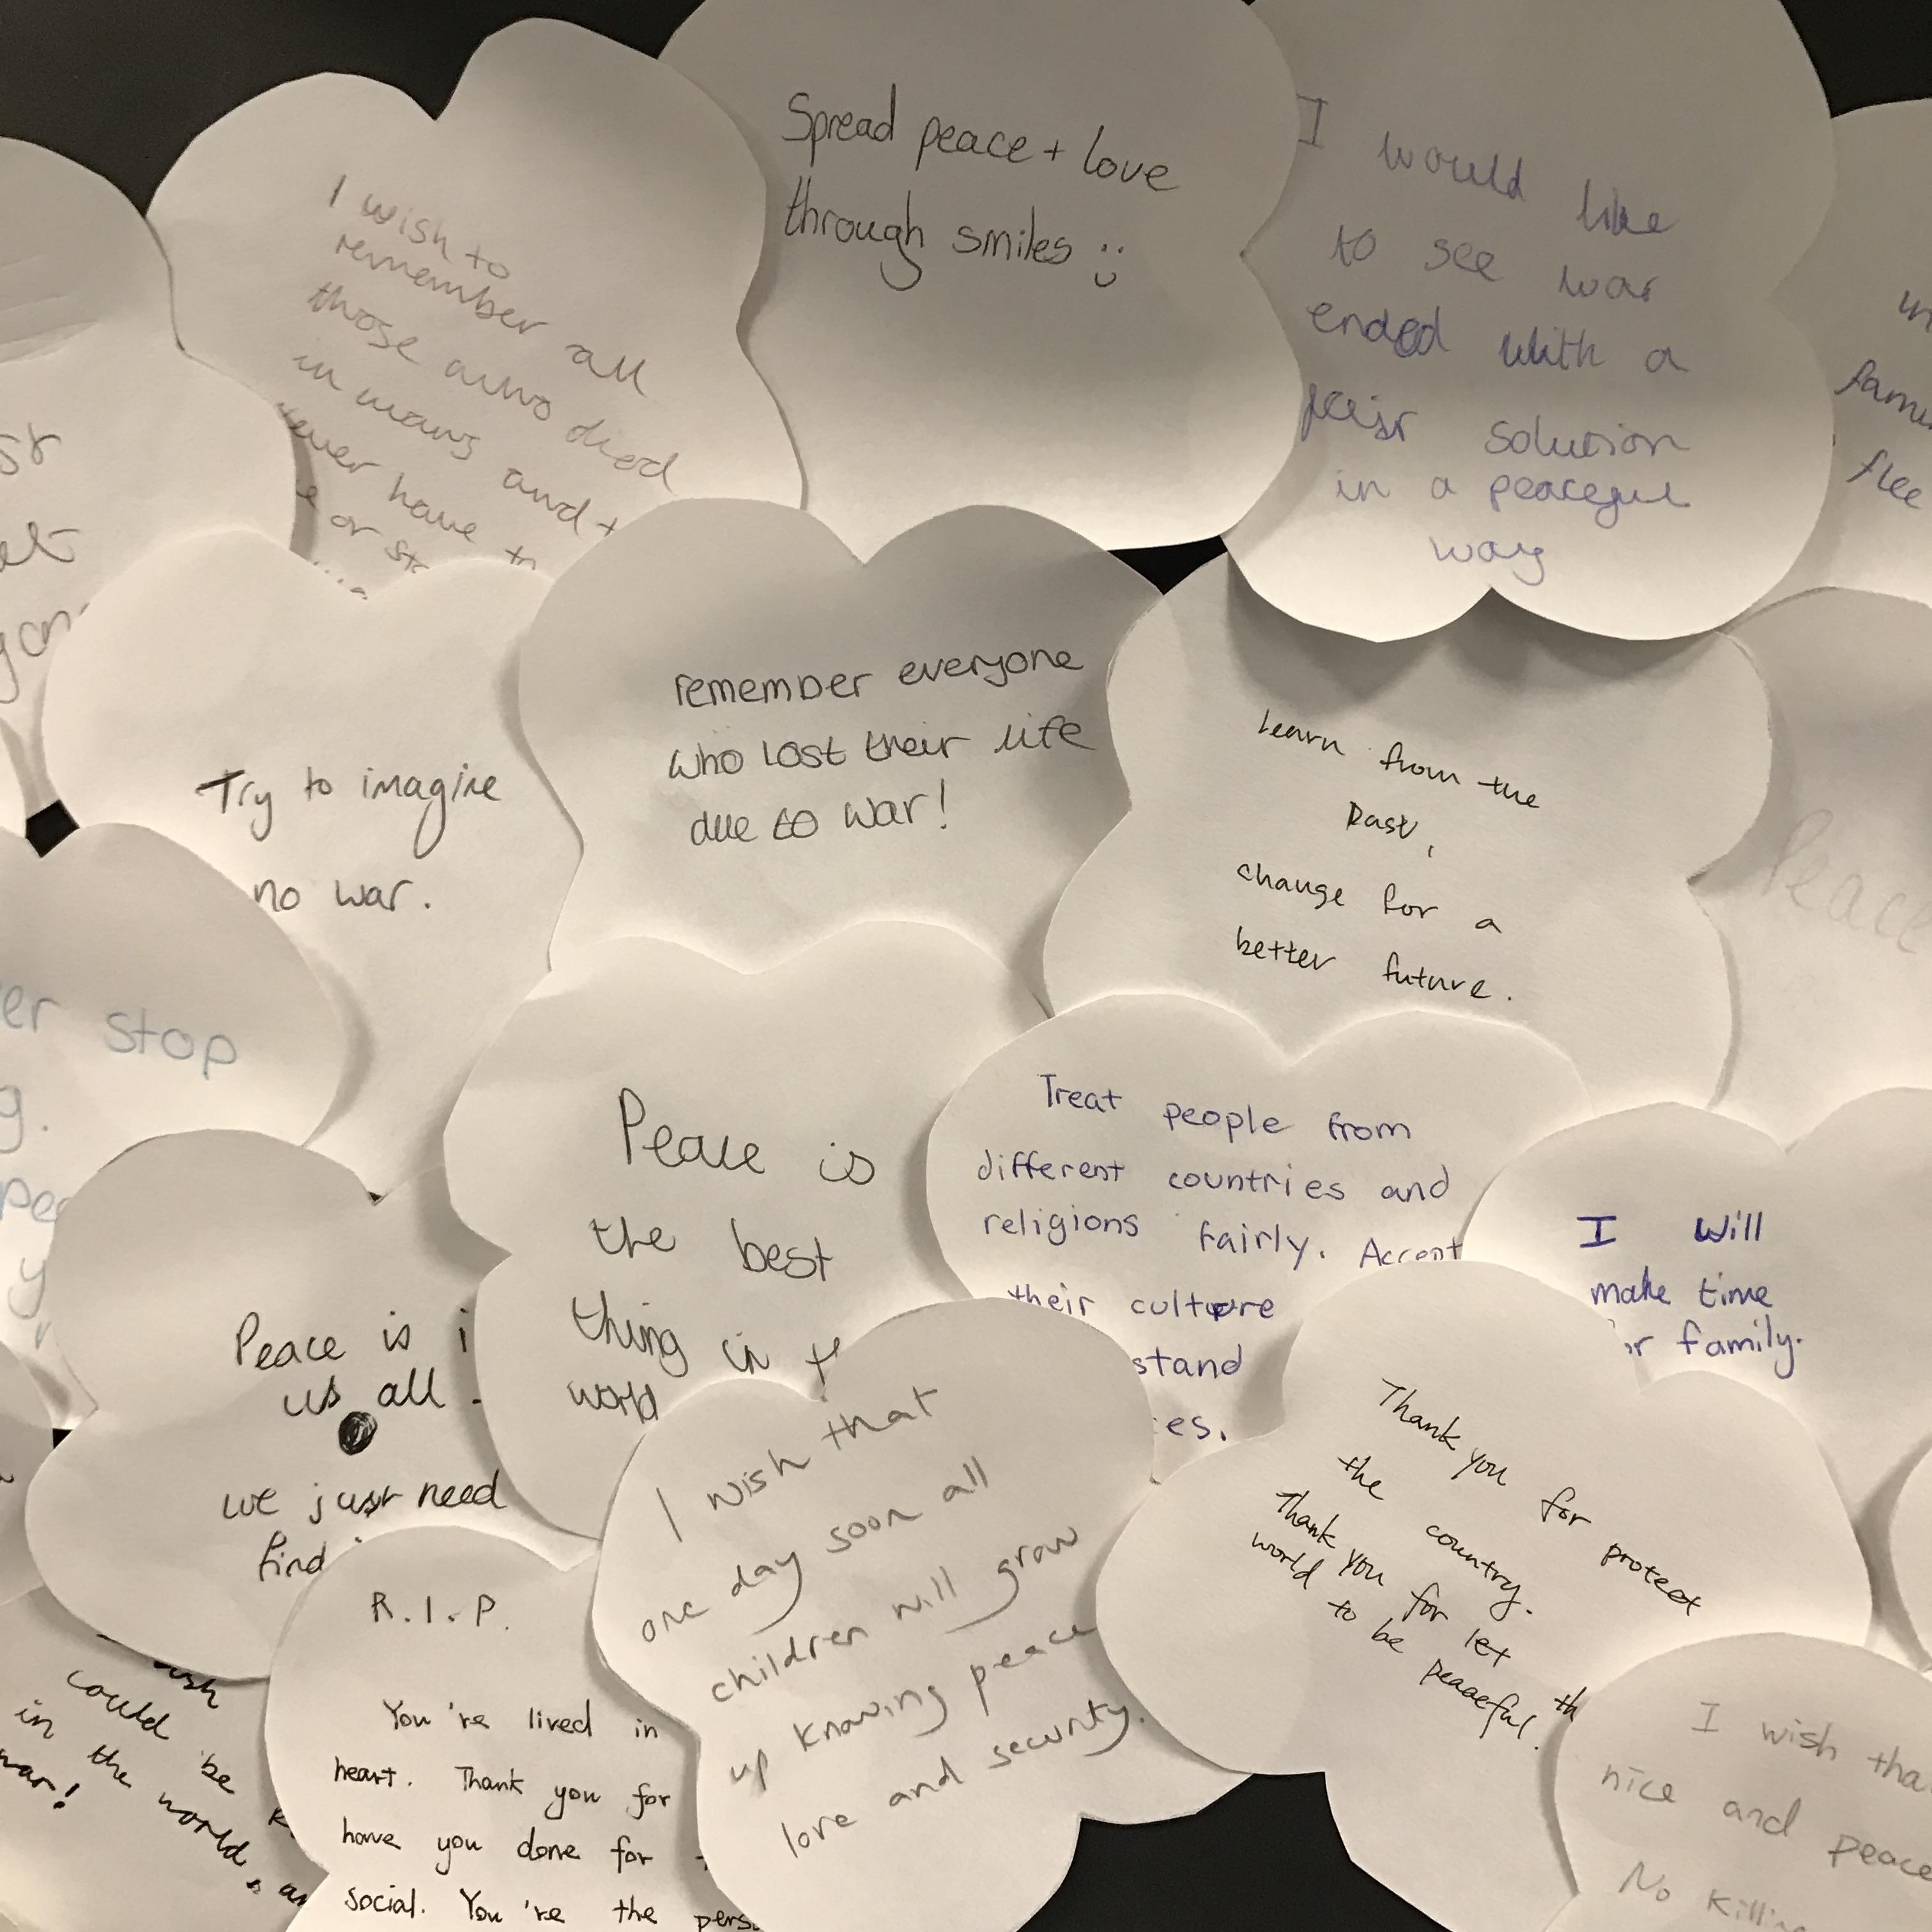 I wish to
remember all
those who died
in wars and
never have
or
Spread peace + love
through smiles :)
I would like
to see war
ended with a
fair solution
in a peaceful
way
flee
Try to imagine
no war.
remember everyone
who lost their life
due to war!
learn from the
Past,
change for a
better future.
Peace
stop
Peace is
the best
thing in
world
Treat people from
different countries and
religions fairly. Accept
their culture
stand
es.
I will
make time
family.
Peace is i
us all -
we just need
find
I wish that
one day soon all
children will grow
up knowing peace
love and security.
Thank you for protect
the country.
Thank you for let th
world to be peaceful.
R.I.P.
You're lived in
heart. Thank you for
have you done for
social. You're the pers
could be
in the world,
war!
I wish tha
nice and peace
No killin